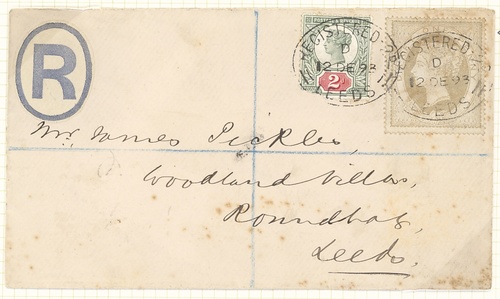 R
POSTAGE & REVENUE
2d 2d
REGISTERED
D
12 DE 93
LEEDS
REGISTERED
D
12 DE 93
LEEDS
Mr. James Pickles,
Woodland Villas,
Roundhay,
Leeds.